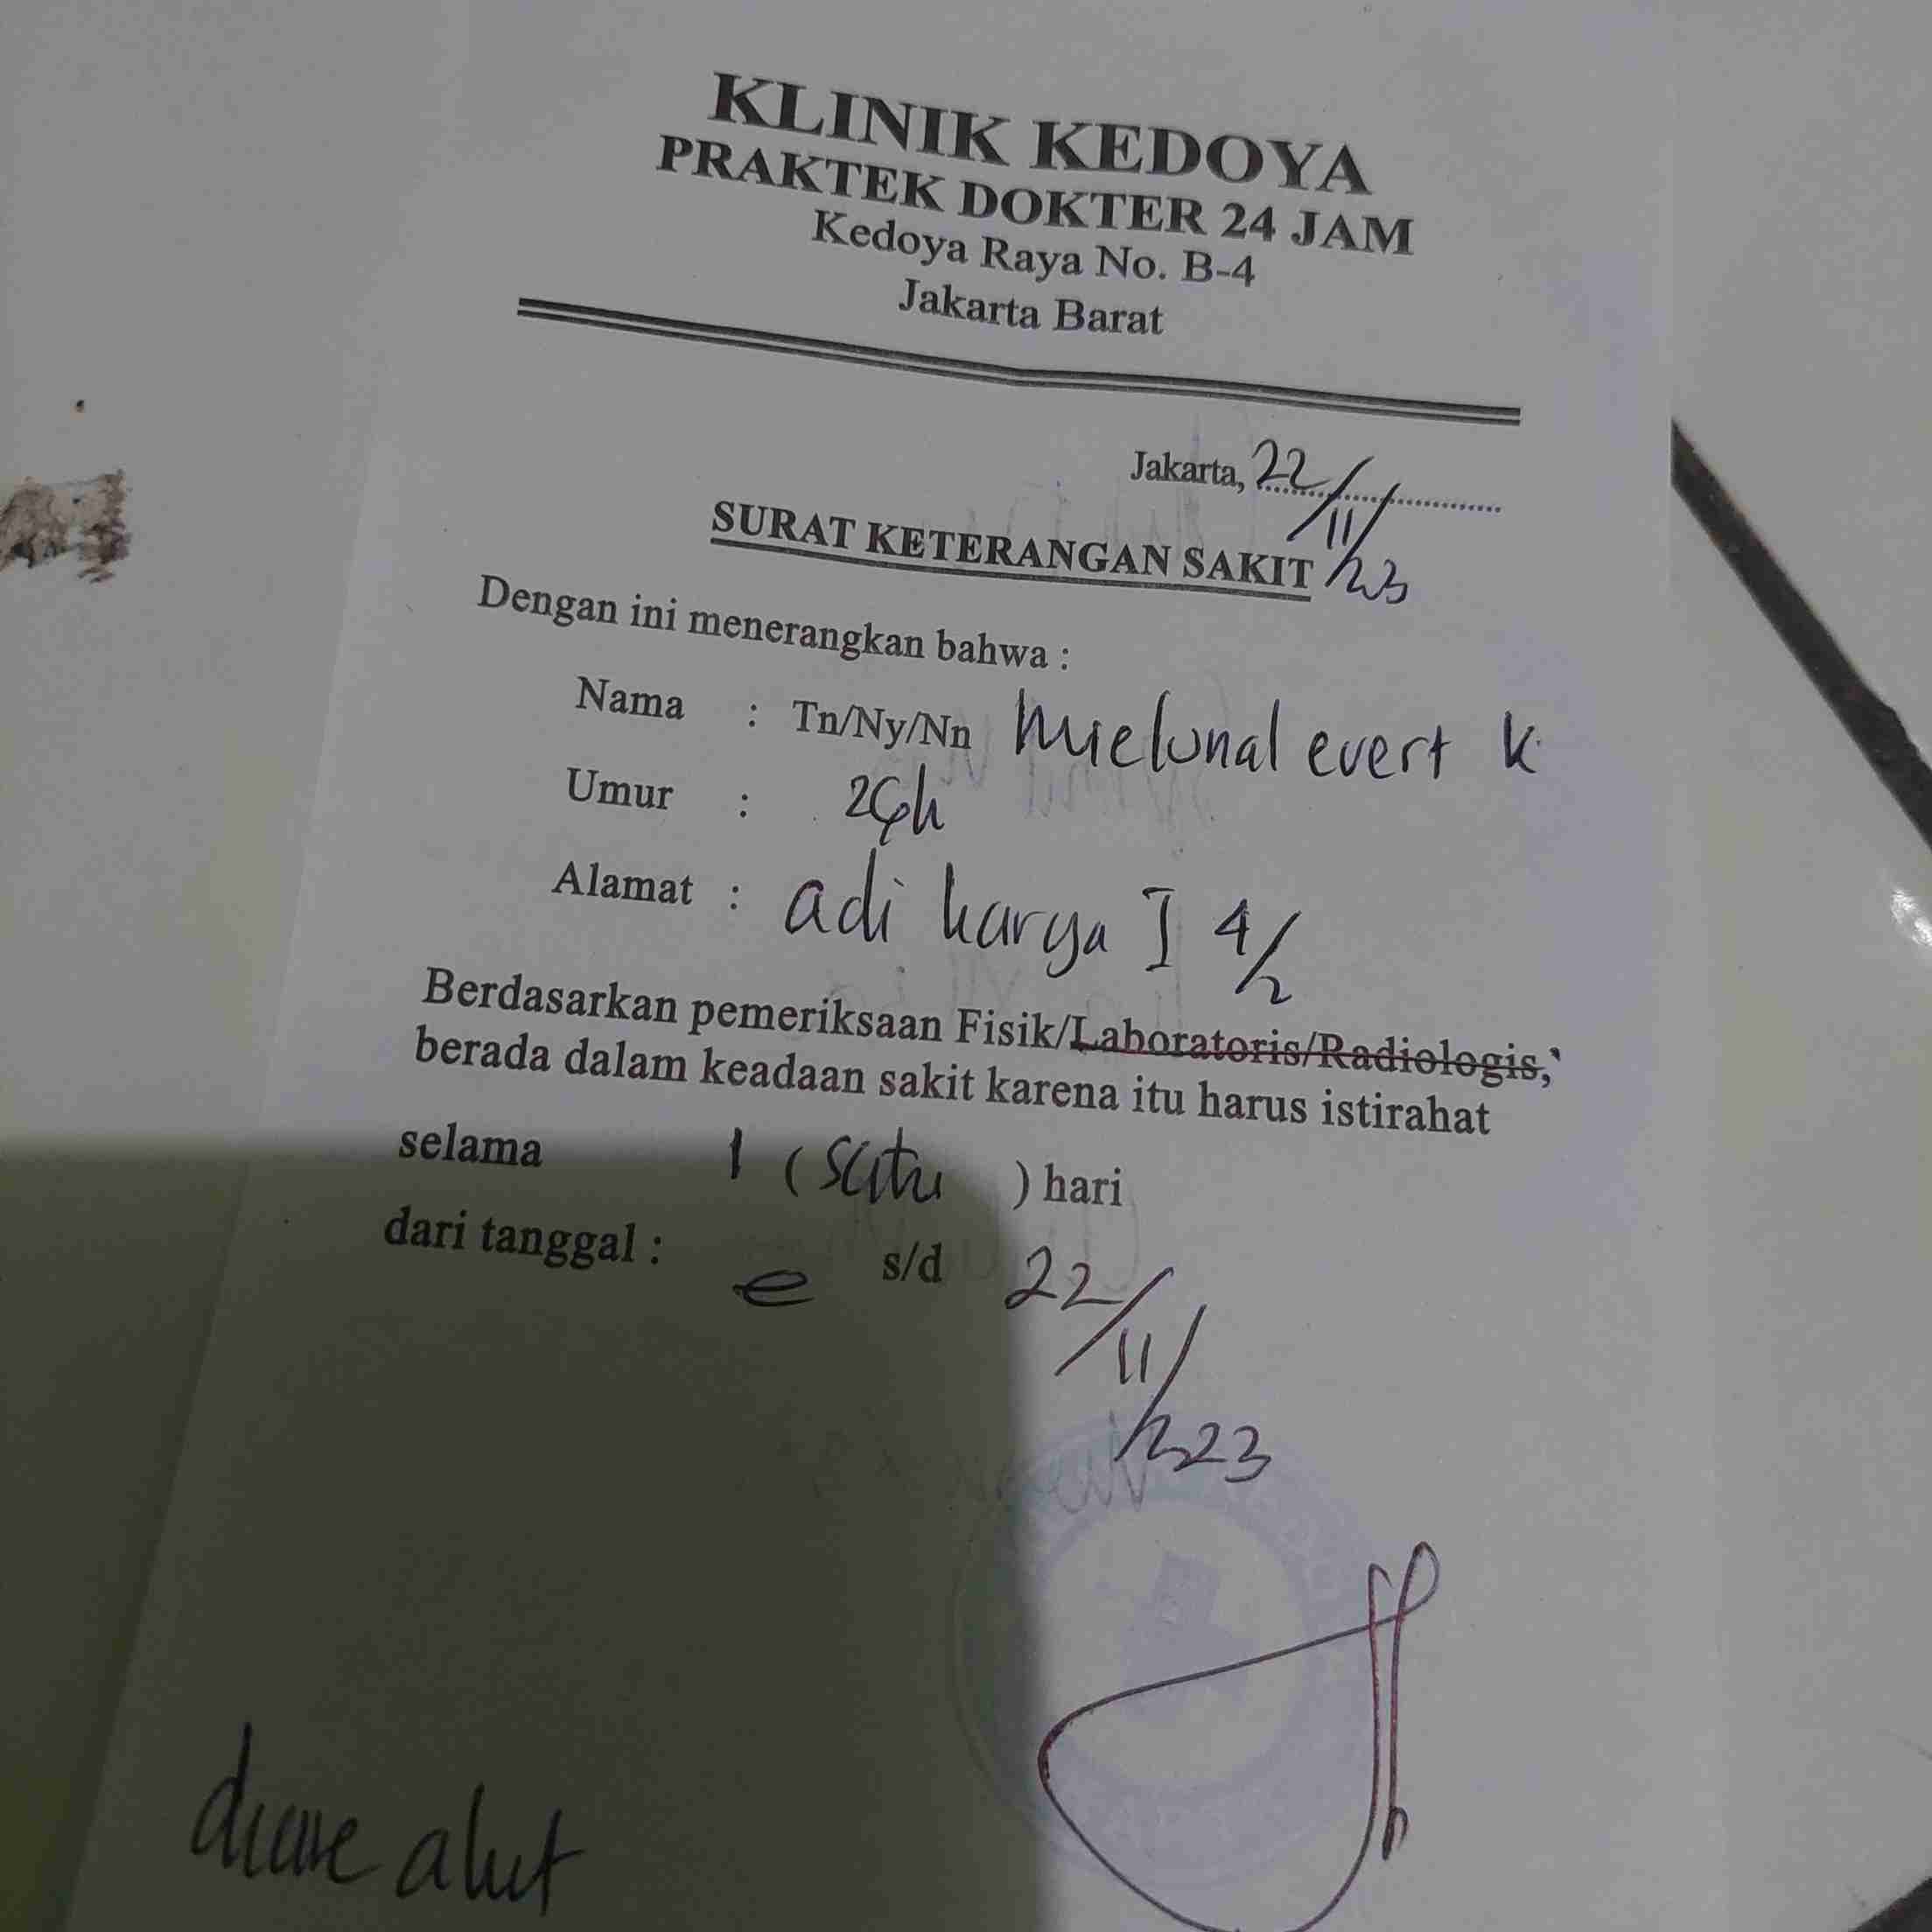 KLINIK KEDOYA
PRAKTEK DOKTER 24 JAM
Kedoya Raya No. B-4
Jakarta Barat
Jakarta, 22/11/23
SURAT KETERANGAN SAKIT
Dengan ini menerangkan bahwa :
Nama : Tn/Ny/Nn evert K
Umur :
Alamat : adi karya I 4/2
Berdasarkan pemeriksaan Fisik/Laboratoris/Radiologis,
berada dalam keadaan sakit karena itu harus istirahat
selama 1 (satu ) hari
dari tanggal : s/d 22/11/2023
diare akut